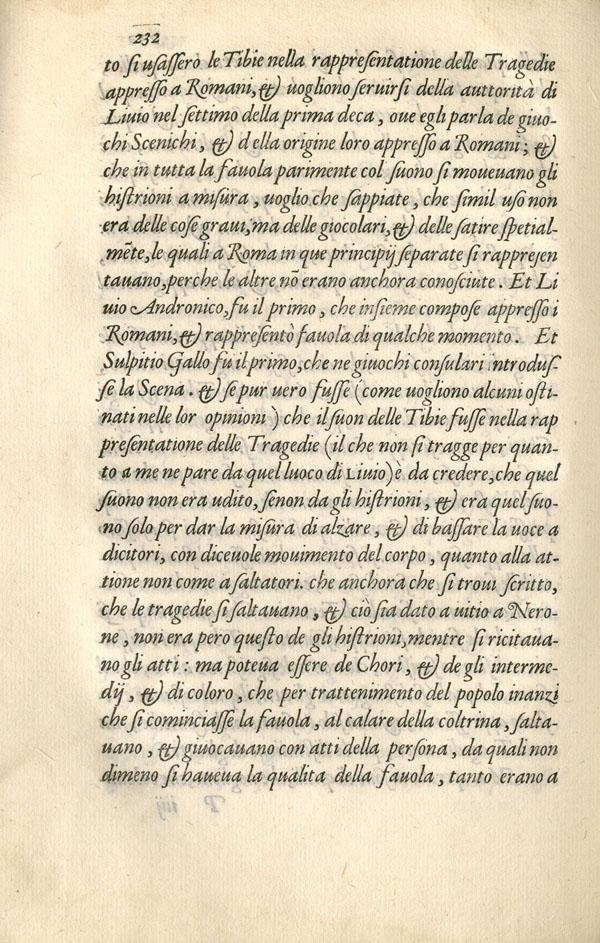 232
to si usassero le Tibie nella rappresentatione delle Tragedie
appresso a Romani, & uogliono seruirsi della auttorità di
Liuio nel settimo della prima deca, oue egli parla de giuo-
chi Scenichi, & della origine loro appresso a Romani; &
che in tutta la fauola parimente col suono si moueuano gli
histrioni a misura, uoglio che sappiate, che simil uso non
era delle cose graui, ma delle giocolari, & delle satire spetial-
mēte, le quali a Roma in que principij separate si rappresen
tauano, perche le altre nō erano anchora conosciute. Et Li
uio Andronico, fu il primo, che insieme compose appresso i
Romani, & rappresentò fauola di qualche momento. Et
Sulpitio Gallo fu il primo, che ne giuochi consulari introdus-
se la Scena. & se pur uero fusse (come uogliono alcuni osti-
nati nelle lor opinioni) che il suon delle Tibie fusse nella rap
presentatione delle Tragedie (il che non si tragge per quan-
to a me ne pare da quel luoco di LIUIO) è da credere, che quel
suono non era udito, senon da gli histrioni, & era quel suo-
no solo per dar la misura di alzare, & di bassare la uoce a
dicitori, con diceuole mouimento del corpo, quanto alla at-
tione non come a saltatori. che anchora che si troui scritto,
che le tragedie si saltauano, & ciò sia dato a uitio a Nero-
ne, non era pero questo de gli histrioni, mentre si ricitaua-
no gli atti: ma poteua essere de Chori, & de gli interme-
dij, & di coloro, che per trattenimento del popolo inanzi
che si cominciasse la fauola, al calare della coltrina, salta-
uano, & giuocauano con atti della persona, da quali non
dimeno si haueua la qualita della fauola, tanto erano a